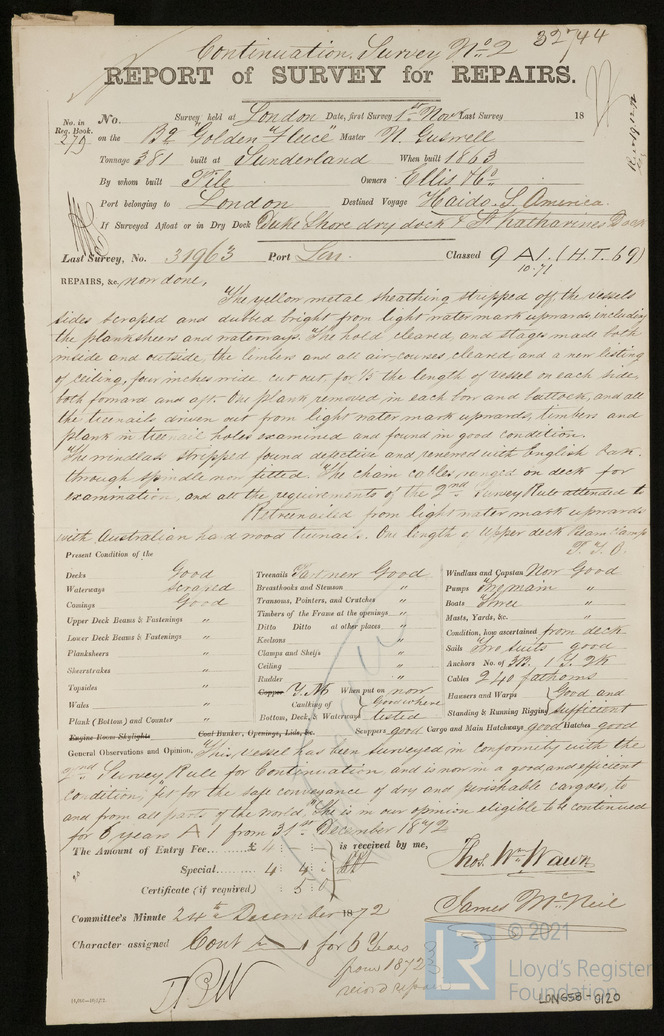 Continuation, Survey No. 2 32744
REPORT of SURVEY for REPAIRS.
No. in Reg. Book. 279
No. Survey held at London Date, first Survey 1st Nov Last Survey 18
on the Bq "Golden Fleece" Master N. Guswell
Tonnage 381 built at Sunderland When built 1863
By whom built Pile Owners Ellis & Co
Port belonging to London Destined Voyage S. America.
If Surveyed Afloat or in Dry Dock Duke Shore dry dock & St Katharines Dock
Last Survey, No. 31963 Port Lon. Classed 9 A1. (H.T. 69)
10.71
REPAIRS, &c. now done,
The yellow metal sheathing stripped off, the vessels
sides scraped and dubbed bright from light water mark upwards including
the planksheers and waterways. The hold cleared, and stages made both
inside and outside, the limbers and all air-courses cleared and a new listing
of ceiling, four inches wide cut out, for 1/3 the length of vessel on each side,
both forward and aft. One plank removed in each bow and buttock, and all
the treenails driven out from light water mark upwards, timbers and
plank in treenail holes examined and found in good condition.
The windlass stripped found defective and renewed with English Oak.
through spindle now fitted. The chain cables, ranged on deck for
examination, and all the requirements of the 2nd Survey Rule attended to
Retreenailed from light water mark upwards
with Australian hard wood treenails. One length of Upper deck Beam Clamp
P. T. O.
Present Condition of the
Decks Good Treenails Part new Good Windlass and Capstan New Good
Waterways Scraped Breasthooks and Stemson " Pumps main "
Comings Good Transoms, Pointers, and Crutches " Boats Three "
Upper Deck Beams & Fastenings " Timbers of the Frame at the openings " Masts, Yards, &c. "
Lower Deck Beams & Fastenings " Ditto Ditto at other places " Condition, how ascertained from deck
Planksheers " Keelsons " Sails Two suits good
Sheerstrakes " Clamps and Shelfs " Anchors No. of 3B, 1 S. 2K
Topsides " Ceiling " Cables 240 fathoms
Wales " Rudder " Hawsers and Warps Good and
Plank (Bottom) and Counter " Copper Y.M. When put on now Standing & Running Rigging sufficient
Caulking of Bottom, Deck, & Waterways Good where tested
Engine Room Skylights Coal Bunker, Openings, Lids, &c. Scuppers good Cargo and Main Hatchways good Hatches good
General Observations and Opinion, This vessel has been surveyed in conformity with the
2nd Survey Rule for Continuation, and is now in a good, and efficient
condition, fit for the safe conveyance of dry and perishable cargoes, to
and from all parts of the world, She is in our opinion eligible to be continued
for 6 years A1 from 31st December 1872
The Amount of Entry Fee......... £ is received by me,
Special ......... 4 4
Certificate (if required) 5 0
Thos. Wm. Wawn
James McNeil
Committee's Minute 24th December 1872
Character assigned Cont A 1 for 6 Years
from 1872
record repairs
© 2021
LR
Lloyd's Register
Foundation
LON658-0120